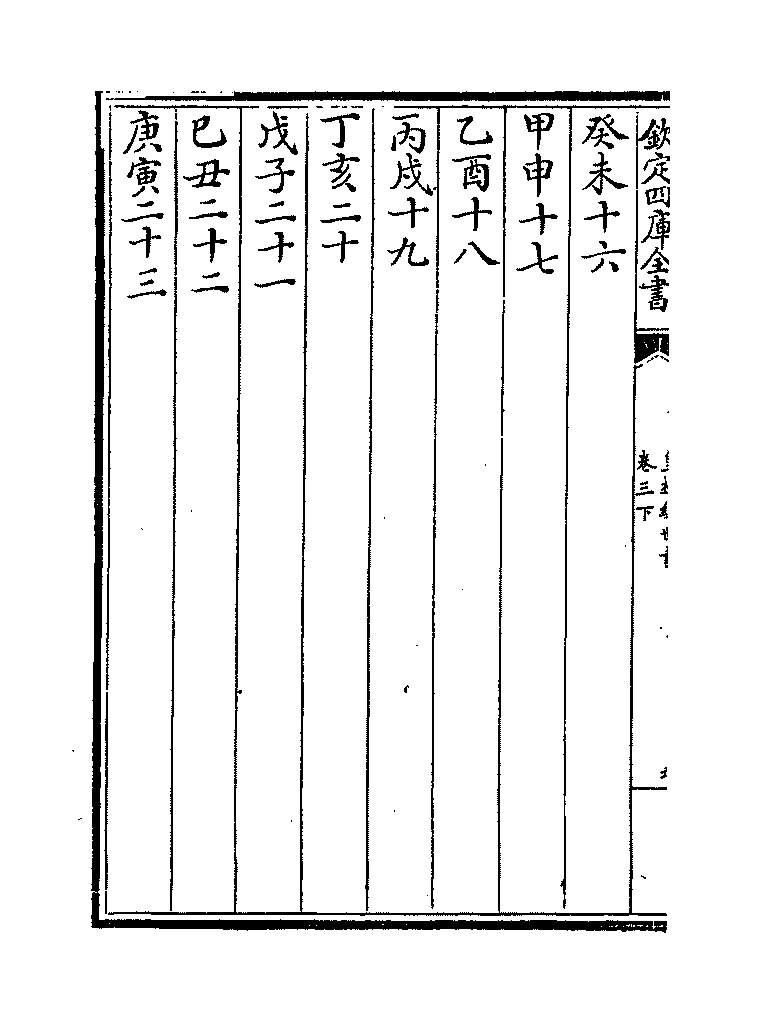 欽定四庫全書
卷三下
癸未十六
甲申十七
乙酉十八
丙戌十九
丁亥二十
戊子二十一
己丑二十二
庚寅二十三